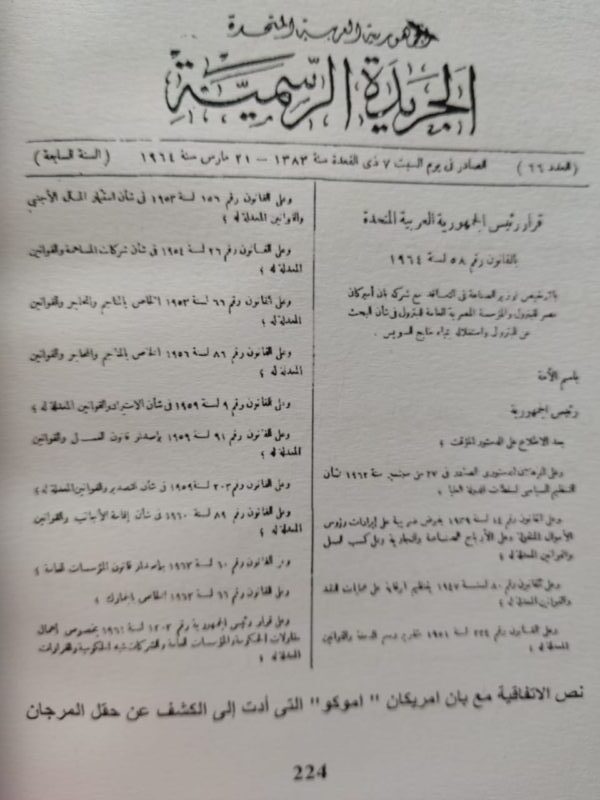 الجمهورية العربية المتحدة
الجريدة الرسمية
(العدد ٦٦) الصادر فى يوم السبت ٧ ذى القعدة سنة ١٣٨٣ — ٢١ مارس سنة ١٩٦٤ (السنة السابعة)
قرار رئيس الجمهورية العربية المتحدة
بالقانون رقم ٥٨ لسنة ١٩٦٤
بالترخيص لوزير الصناعة فى التعاقد مع شركة بان أمريكان
مصر للبترول والمؤسسة المصرية العامة للبترول فى شأن البحث
عن البترول واستغلاله بمياه خليج السويس
باسم الأمة
رئيس الجمهورية
بعد الاطلاع على الدستور المؤقت ؛
وعلى الإعلان الدستورى الصادر فى ٢٧ من سبتمبر سنة ١٩٦٢ بشأن
التنظيم السياسى لسلطات الدولة العليا ؛
وعلى القانون رقم ١٤ لسنة ١٩٣٩ بفرض ضريبة على إيرادات رؤوس
الأموال المنقولة وعلى الأرباح الصناعية والتجارية وعلى كسب العمل
والقوانين المعدلة له ؛
وعلى القانون رقم ٨٠ لسنة ١٩٤٧ بتنظيم الرقابة على عمليات النقد
والقوانين المعدلة له ؛
وعلى القانون رقم ٢٢٤ لسنة ١٩٥١ بتقرير رسم الدمغة والقوانين
المعدلة له ؛
وعلى القانون رقم ١٥٦ لسنة ١٩٥٣ فى شأن استثمار المال الأجنبى
والقوانين المعدلة له ؛
وعلى القانون رقم ٢٦ لسنة ١٩٥٤ فى شأن شركات المساهمة والقوانين
المعدلة له ؛
وعلى القانون رقم ٦٦ لسنة ١٩٥٣ الخاص بالمناجم والمحاجر والقوانين
المعدلة له ؛
وعلى القانون رقم ٨٦ لسنة ١٩٥٦ الخاص بالمناجم والمحاجر والقوانين
المعدلة له ؛
وعلى القانون رقم ٩ لسنة ١٩٥٩ فى شأن الاستيراد والقوانين المعدلة له ؛
وعلى القانون رقم ٩١ لسنة ١٩٥٩ بإصدار قانون العمل والقوانين
المعدلة له ؛
وعلى القانون رقم ٢٠٣ لسنة ١٩٥٩ بشأن التصدير والقوانين المعدلة له ؛
وعلى القانون رقم ٨٩ لسنة ١٩٦٠ فى شأن إقامة الأجانب والقوانين
المعدلة له ؛
وعلى القانون رقم ٦٠ لسنة ١٩٦٣ بإصدار قانون المؤسسات العامة ؛
وعلى القانون رقم ٦٦ لسنة ١٩٦٣ الخاص بالجمارك ؛
وعلى قرار رئيس الجمهورية رقم ١٢٠٣ لسنة ١٩٦١ بخصوص أعمال
مقاولات الحكومة والمؤسسات العامة والشركات شبه الحكومية والقرارات
المعدلة له ؛
نص الاتفاقية مع بان امريكان " اموكو" التى أدت إلى الكشف عن حقل المرجان
224